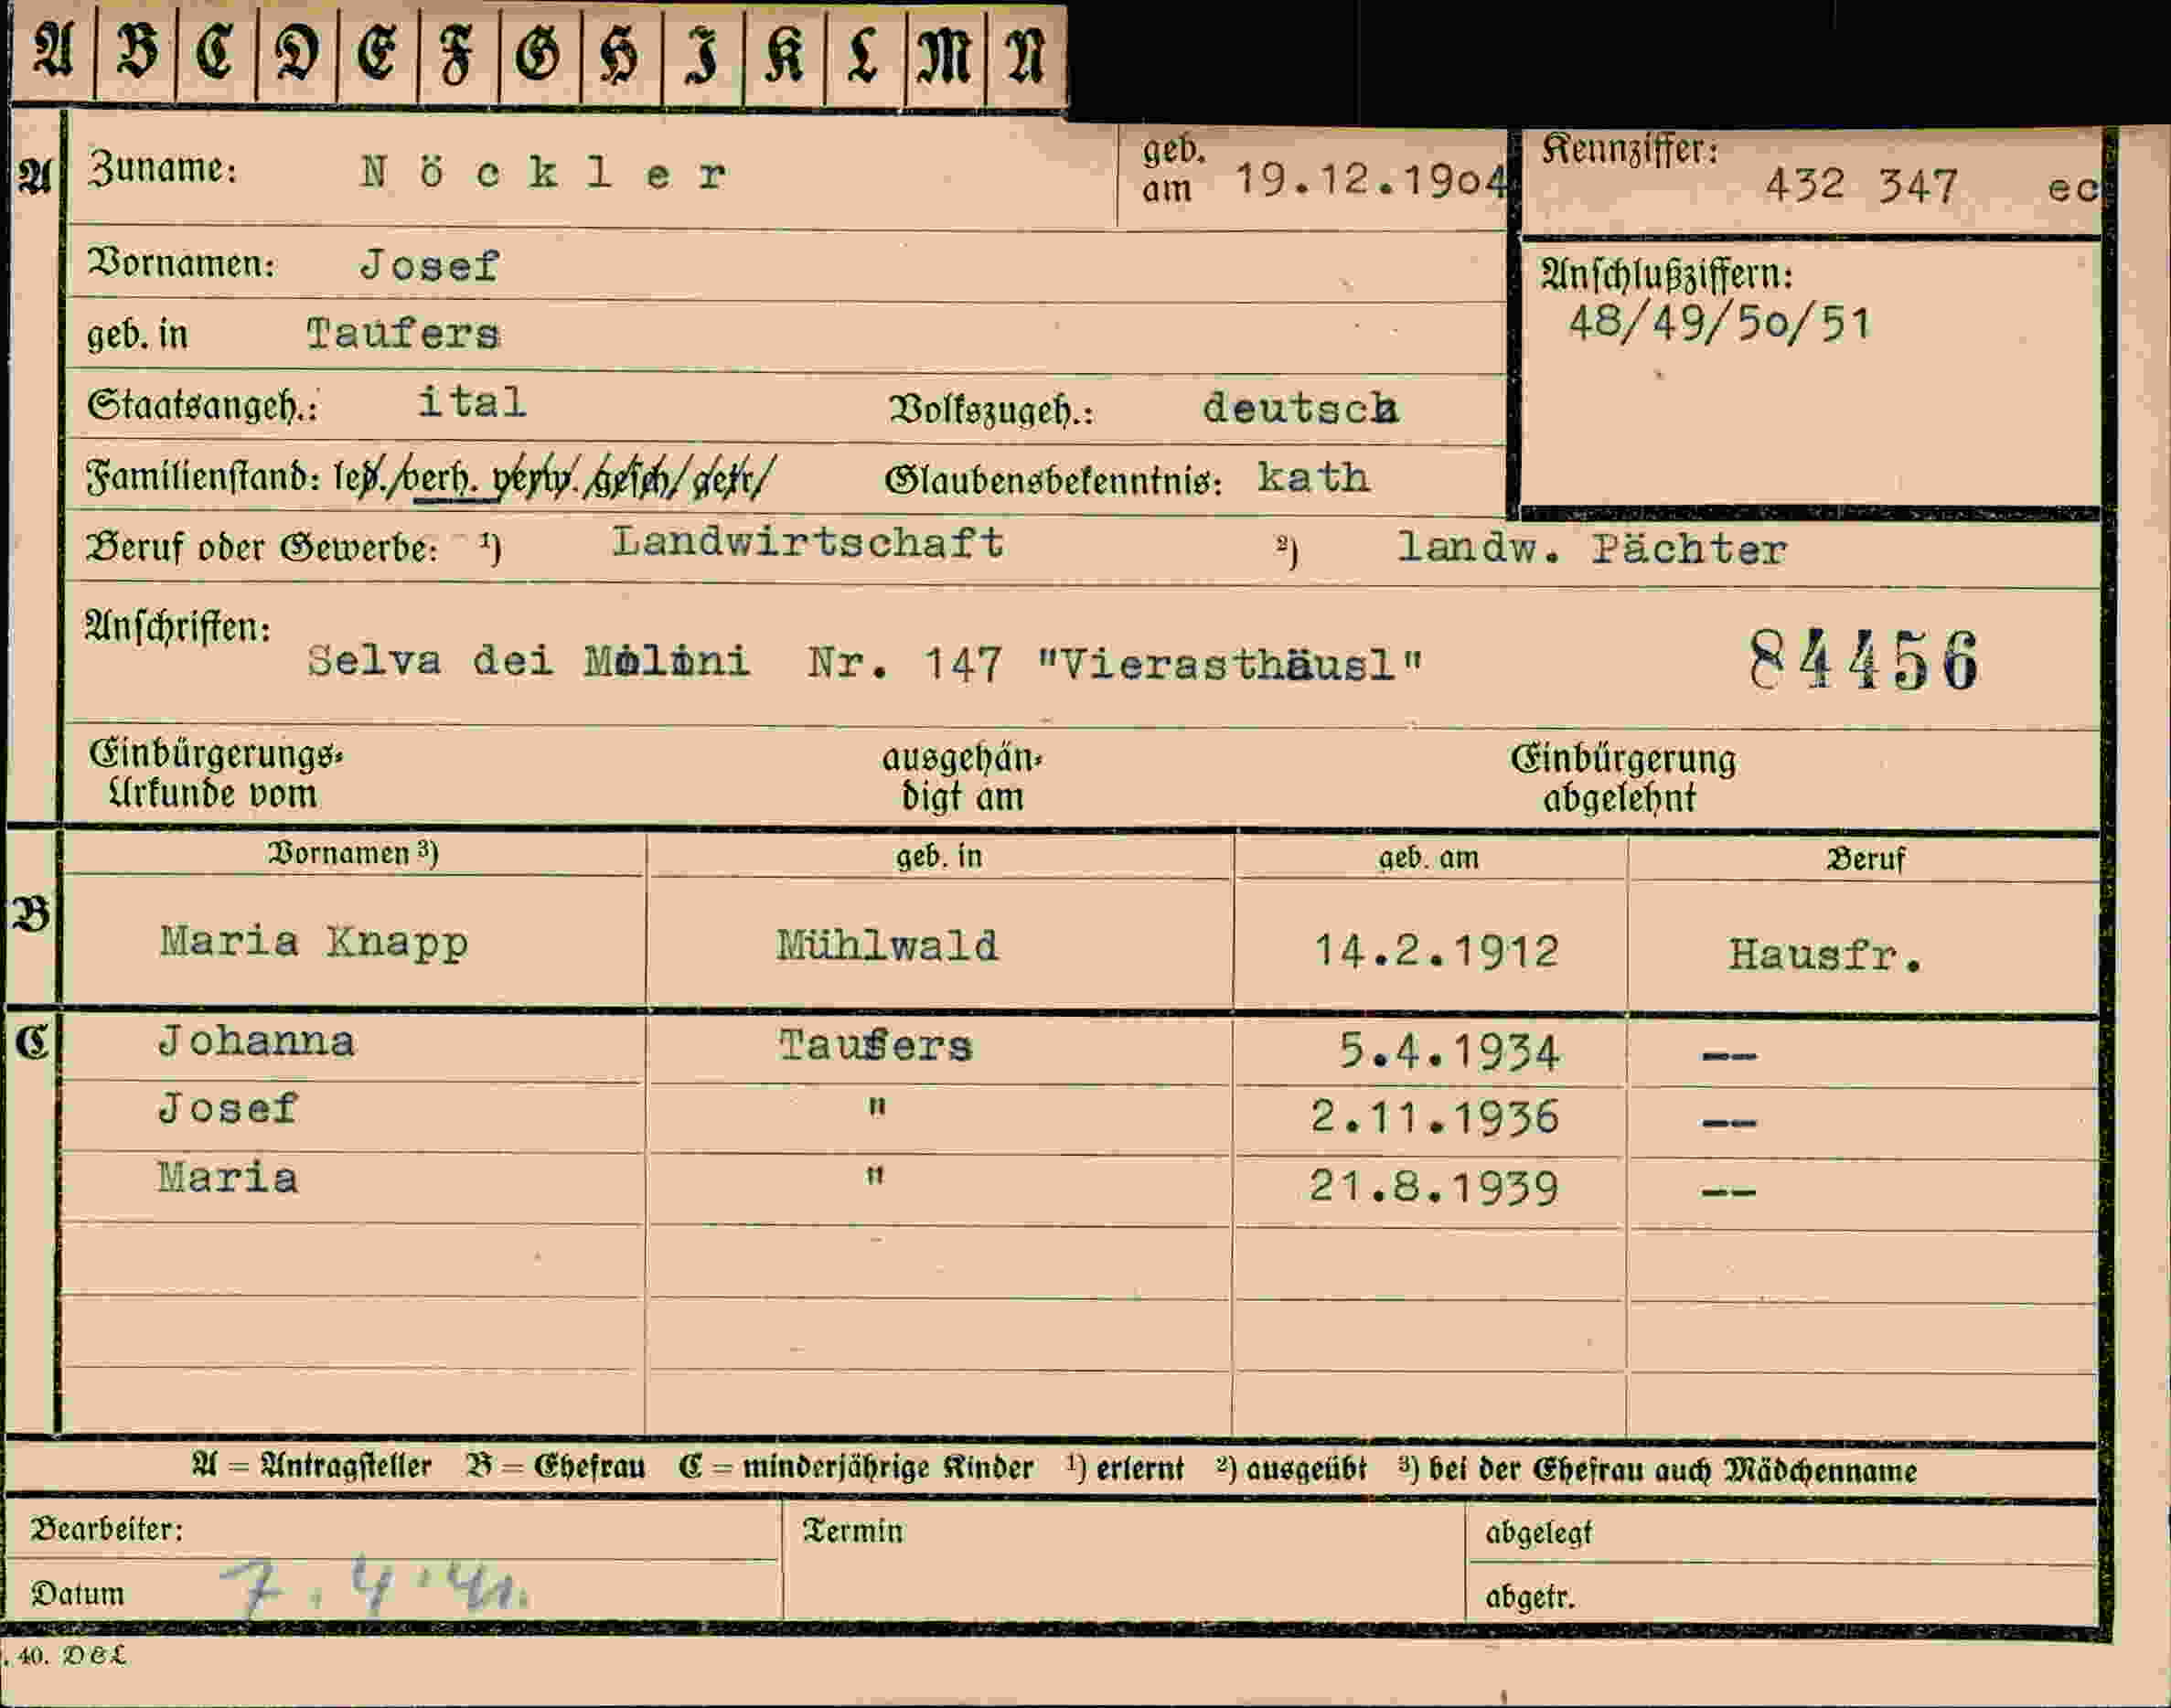 A B C D E F G H I K L M N
A Zuname: Nöckler geb. am 19.12.1904 Kennziffer: 432 347 ec
Vornamen: Josef Anschlußziffern:
48/49/50/51
geb. in Taufers
Staatsangeh.: ital Volkszugeh.: deutsch
Familienstand: led./verh. verw./gesch/getr/ Glaubensbekenntnis: kath
Beruf oder Gewerbe: 1) Landwirtschaft 2) landw. Pächter
Anschriften:
Selva dei Molini Nr. 147 "Vierasthäusl" 84456
Einbürgerungs- ausgehän- Einbürgerung
Urkunde vom digt am abgelehnt
Vornamen 3) geb. in geb. am Beruf
B Maria Knapp Mühlwald 14.2.1912 Hausfr.
C Johanna Taufers 5.4.1934 --
Josef " 2.11.1936 --
Maria " 21.8.1939 --
A = Antragsteller B = Ehefrau C = minderjährige Kinder 1) erlernt 2) ausgeübt 3) bei der Ehefrau auch Mädchenname
Bearbeiter: Termin abgelegt
Datum 7.4.41. abgetr.
. 40. D&L